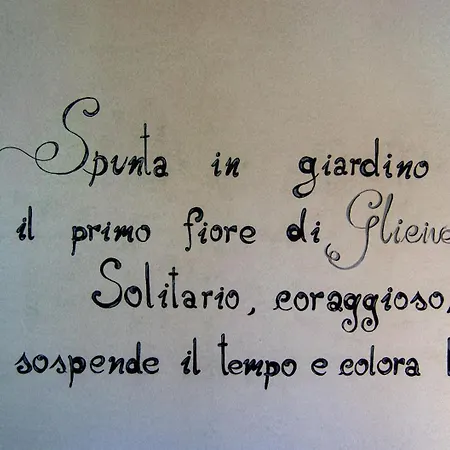 Spunta in giardino
il primo fiore di
Solitario, coraggioso,
sospende il tempo e colora